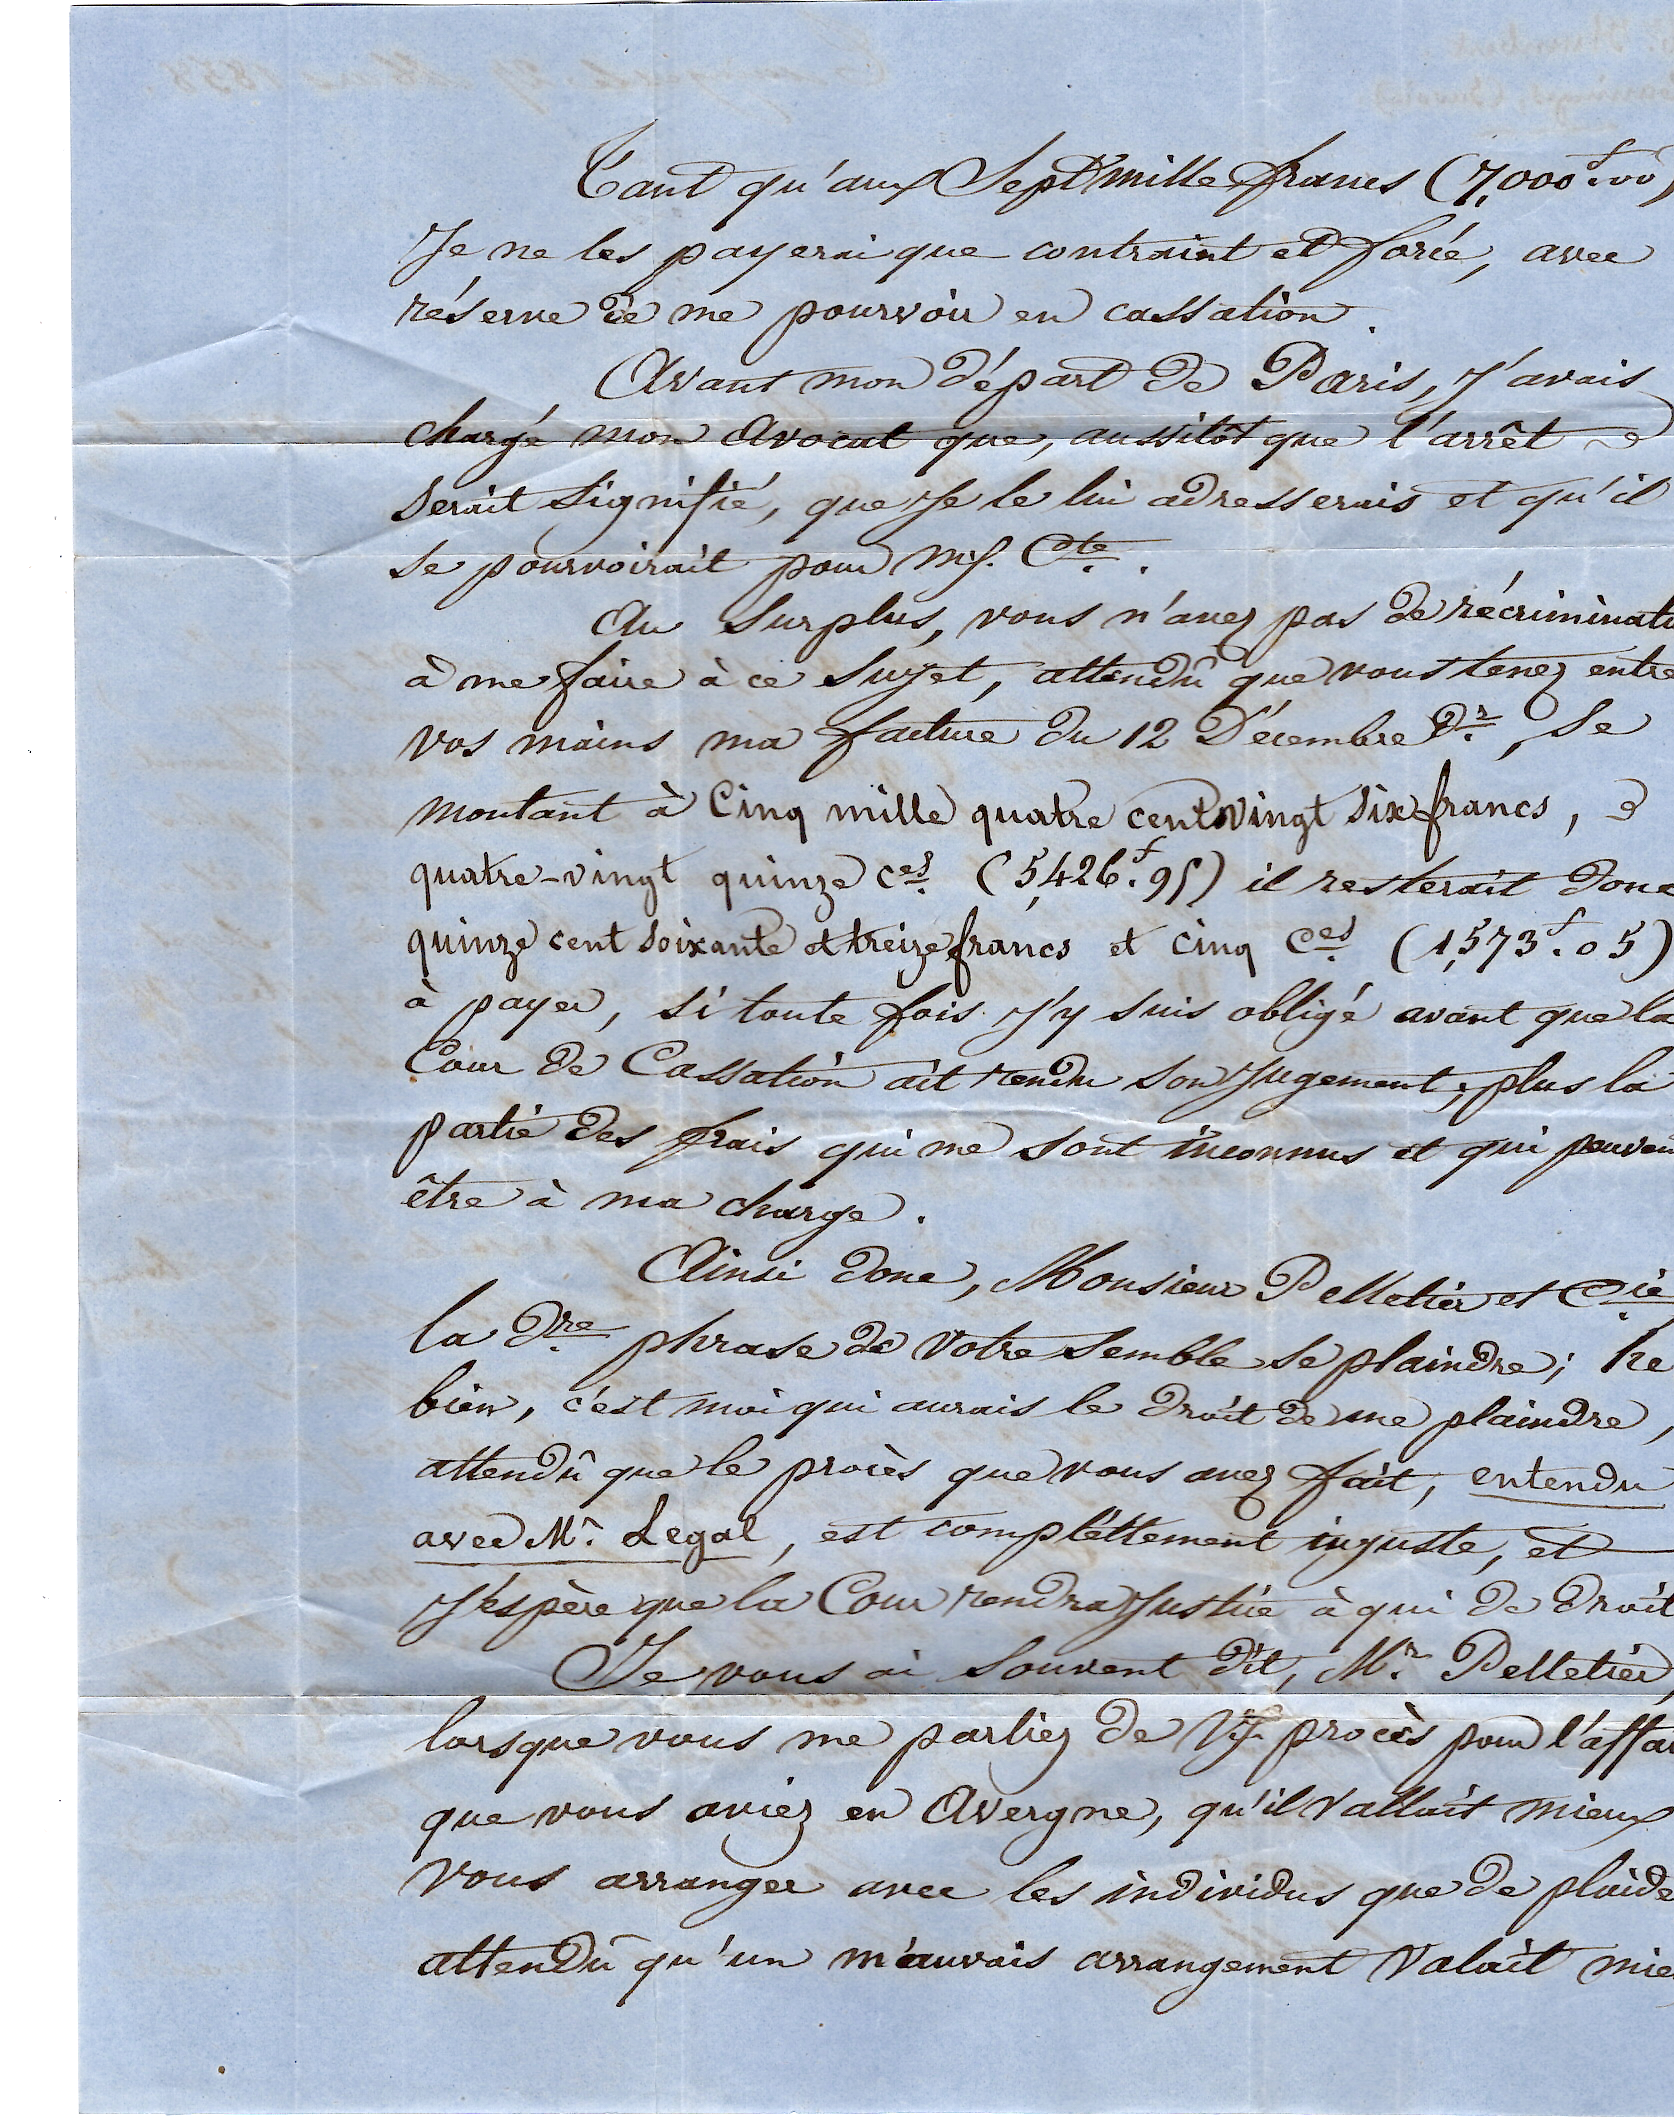 Tant qu'aux Sept mille francs (7,000f.00)
Je ne les payerai que contraint et forcé, avec
réserve de me pourvoir en cassation.
Avant mon départ de Paris, j'avais
chargé mon Avocat que, aussitôt que l'arrêt
serait signifié, que je le lui adresserais et qu'il
se pourvoirait pour m/. Cte.
Au surplus, vous n'avez pas de récriminati
à me faire à ce sujet, attendû que vous tenez entre
vos mains ma facture du 12 Décembre Dr, se
montant à Cinq mille quatre cent vingt six francs,
quatre-vingt quinze ces (5,426f.95) il resterait donc
quinze cent soixante et treize francs et cinq Ces (1,573f.05)
à payer, si toute fois j'y suis obligé avant que la
Cour de Cassation ait rendu son jugement; plus la
partie des frais qui me sont inconnus et qui peuven
être à ma charge.
Ainsi donc, Monsieur Pelletier et Cie,
la Dre phrase de votre semble se plaindre; he
bien, c'est moi qui aurais le droit de me plaindre,
attendû que le procès que vous avez fait, entendu
avec Mr. Legal, est compléttement injuste, et
j'éspère que la Cour rendra justice à qui de droit
Je vous ai souvent dit, Mr. Pelletier,
lorsque vous me parliez de V/. procès pour l'affai
que vous aviez en Avergne, qu'il vallait mieux
vous arranger avec les individus que de plaide
attendû qu'un mauvais arrangement valait mie